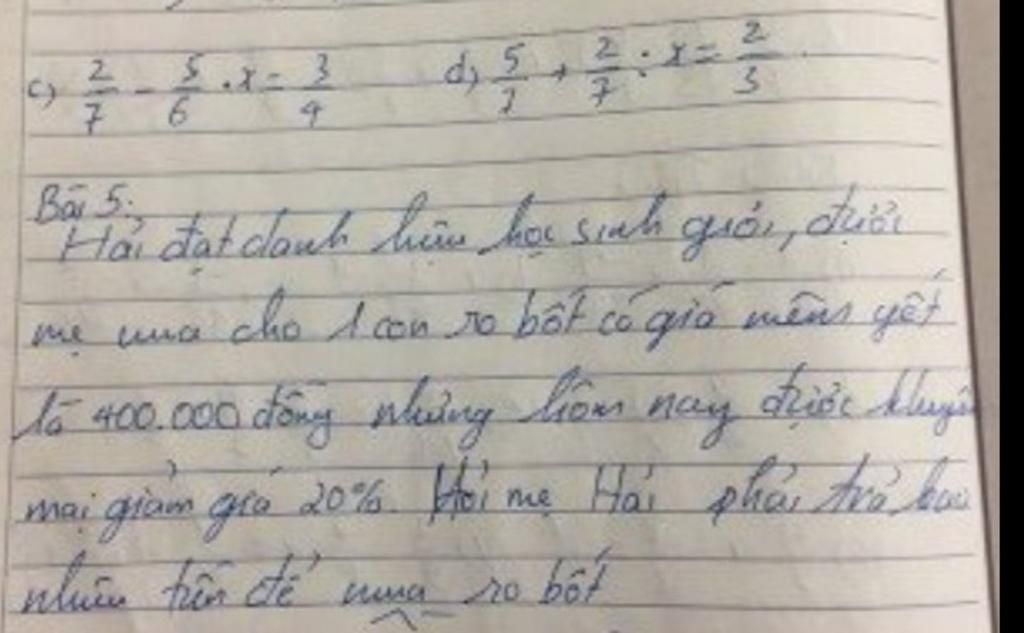 c) 2/7 - 5/6 . x = 3/4 d) 5/7 + 2/7 : x = 2/3
Bài 5.
Hải đạt danh hiệu học sinh giỏi, được
mẹ mua cho 1 con rô bốt có giá niêm yết
là 400.000 đồng nhưng hôm nay được khuyến
mại giảm giá 20%. Hỏi mẹ Hải phải trả bao
nhiêu tiền để mua rô bốt